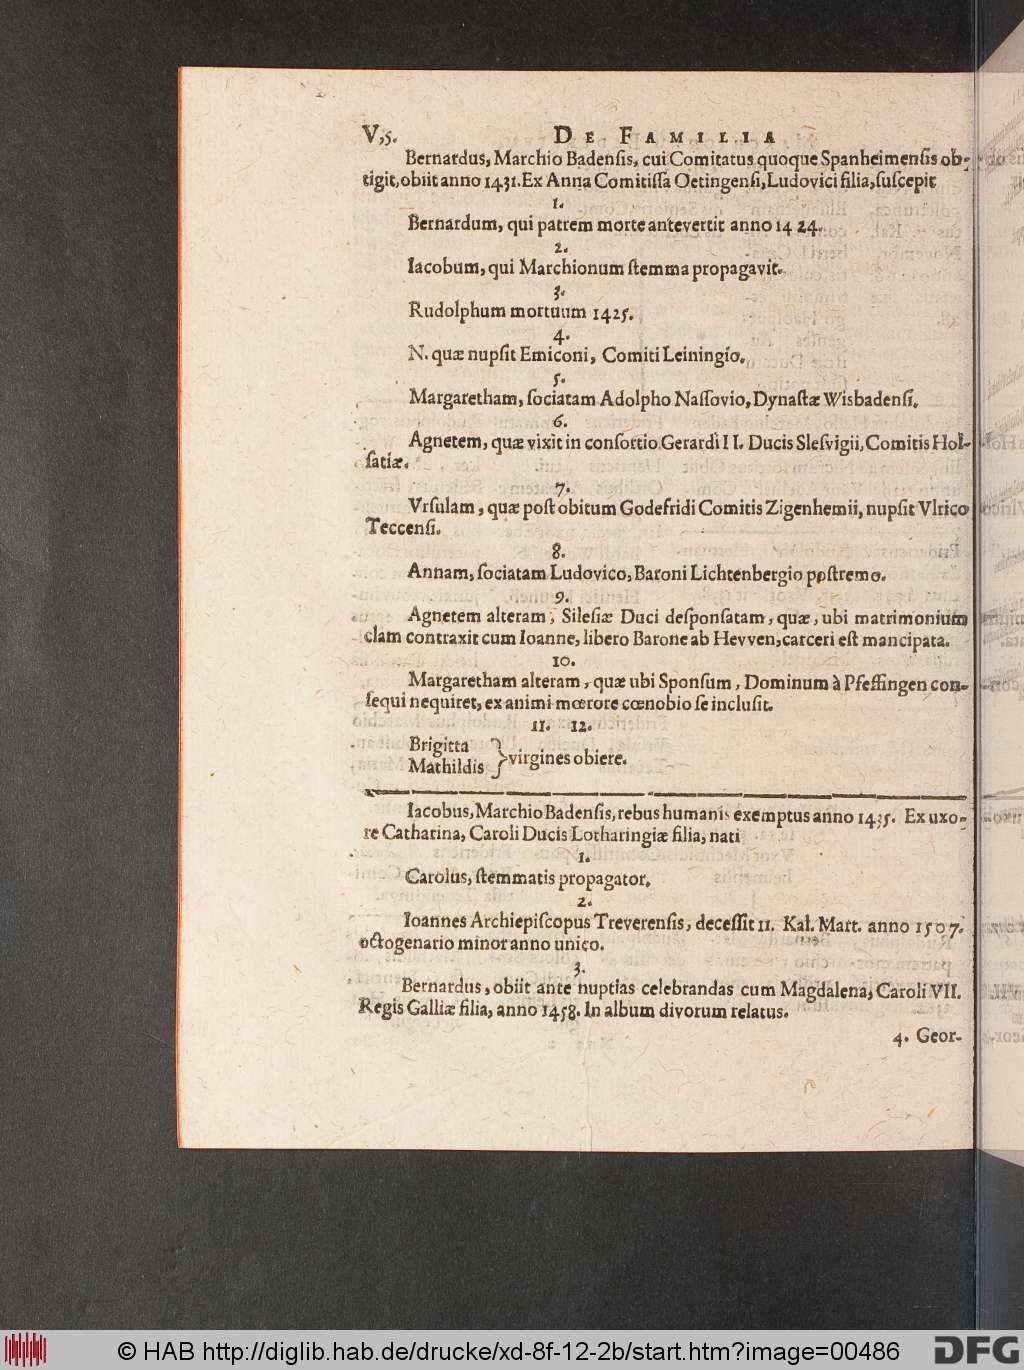 V,5. DE FAMILIA
Bernardus, Marchio Badenſis, cui Comitatus quoque Spanheimenſis ob-
tigit, obiit anno 1431. Ex Anna Comitiſſa Oetingenſi, Ludovici filia, ſuſcepit
1.
Bernardum, qui patrem morte antevertit anno 14 24.
2.
Iacobum, qui Marchionum ſtemma propagavit.
3.
Rudolphum mortuum 1425.
4.
N. quæ nupſit Emiconi, Comiti Leiningio.
5.
Margaretham, ſociatam Adolpho Naſſovio, Dynaſtæ Wisbadenſi.
6.
Agnetem, quæ vixit in conſortio Gerardi II. Ducis Sleſvigii, Comitis Hol-
ſatiæ.
7.
Vrſulam, quæ poſt obitum Godefridi Comitis Zigenhemii, nupſit Vlrico
Teccenſi.
8.
Annam, ſociatam Ludovico, Baroni Lichtenbergio poſtremo.
9.
Agnetem alteram, Sileſiæ Duci deſponſatam, quæ, ubi matrimonium
clam contraxit cum Ioanne, libero Barone ab Hevven, carceri eſt mancipata.
10.
Margaretham alteram, quæ ubi Sponſum, Dominum à Pfeffingen con-
ſequi nequiret, ex animi mœrore cœnobio ſe incluſit.
11. 12.
Brigitta
Mathildis } virgines obiere.
Iacobus, Marchio Badenſis, rebus humanis exemptus anno 1435. Ex uxo-
re Catharina, Caroli Ducis Lotharingiæ filia, nati
1.
Carolus, ſtemmatis propagator.
2.
Ioannes Archiepiſcopus Treverenſis, deceſſit 11. Kal. Mart. anno 1507.
octogenario minor anno unico.
3.
Bernardus, obiit ante nuptias celebrandas cum Magdalena, Caroli VII.
Regis Galliæ filia, anno 1458. In album divorum relatus.
4. Geor-
© HAB http://diglib.hab.de/drucke/xd-8f-12-2b/start.htm?image=00486
DFG